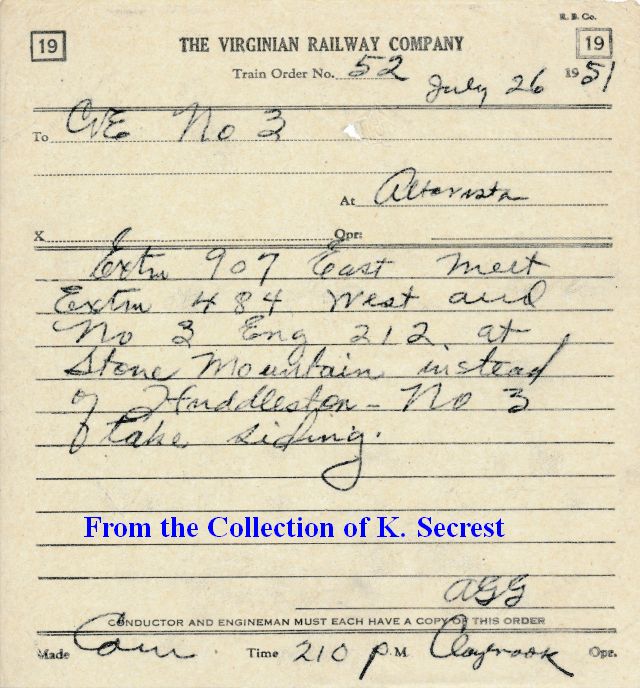 R. B. Co.
19 THE VIRGINIAN RAILWAY COMPANY 19
Train Order No. 52 July 26 1951
To C&E No 3
At Altavista
X Opr:
Extra 907 East meet
Extra 484 West and
No 3 Eng 212 at
Stone Mountain instead
of Huddleston - No 3
take siding.
From the Collection of K. Secrest
AGG
CONDUCTOR AND ENGINEMAN MUST EACH HAVE A COPY OF THIS ORDER
Made Com Time 210 P.M. Claybrook Opr.